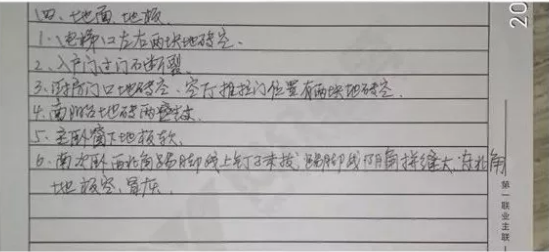 四、地面、地板
1、电梯口左右两块地砖空。
2、入户门过门石断裂
3、厨房门口地砖空、客厅推拉门位置有两块地砖空。
4、南阳台地砖两
5、主卧窗下地板软
6、南次卧西北角踢脚线上钉子未拔、踢脚线阴角拼缝大、东北角
地板空、冒灰
20
第一联业主联